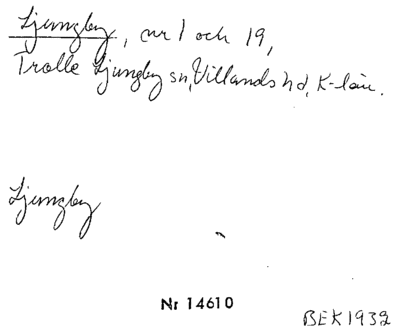 Ljungby, nr 1 och 19,
Trolle Ljungby sn, Villands hd, K-län.
Ljungby
Nr 14610
BEK1932